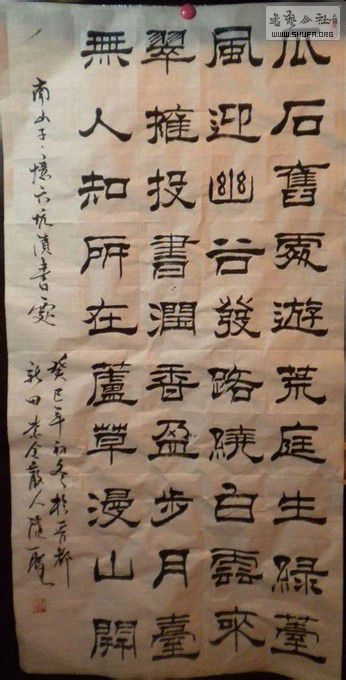 書藝公社
WWW.SHUFA.ORG
瓜石舊處遊荒庭生綠薹
風迎幽谷發路繞白雲來
翠擁投書澗香盈步月臺
無人知所在蘆草漫山開
南山子憶六坑讀書處
癸巳年初冬於晋都
新田散人